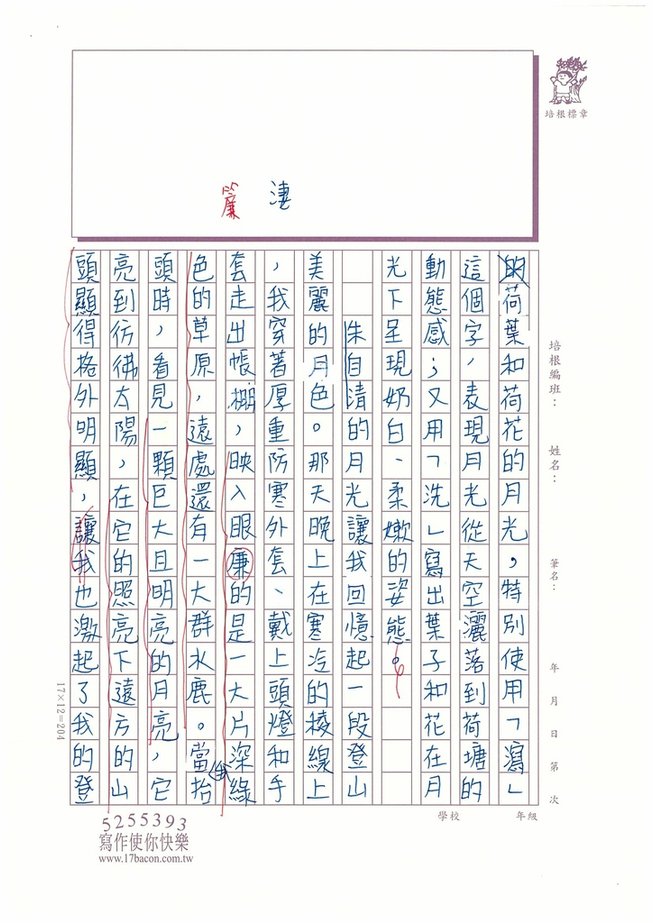 培根標章
淒
簾
的荷葉和荷花的月光，特別使用「瀉」
這個字，表現月光從天空灑落到荷塘的
動態感；又用「洗」寫出葉子和花在月
光下呈現奶白、柔嫩的姿態。
朱自清的月光讓我回憶起一段登山
美麗的月色。那天晚上在寒冷的稜線上
，我穿著厚重防寒外套、戴上頭燈和手
套走出帳棚，映入眼廉的是一大片深綠
色的草原，遠處還有一大群水鹿。當我抬
頭時，看見一顆巨大且明亮的月亮，它
亮到彷彿太陽，在它的照亮下遠方的山
頭顯得格外明顯，讓我也激起了我的登
培根編班：
姓名：
筆名：
年 月 日 第 次
學校
年級
17×12=204
5255393
寫作使你快樂
www.17bacon.com.tw